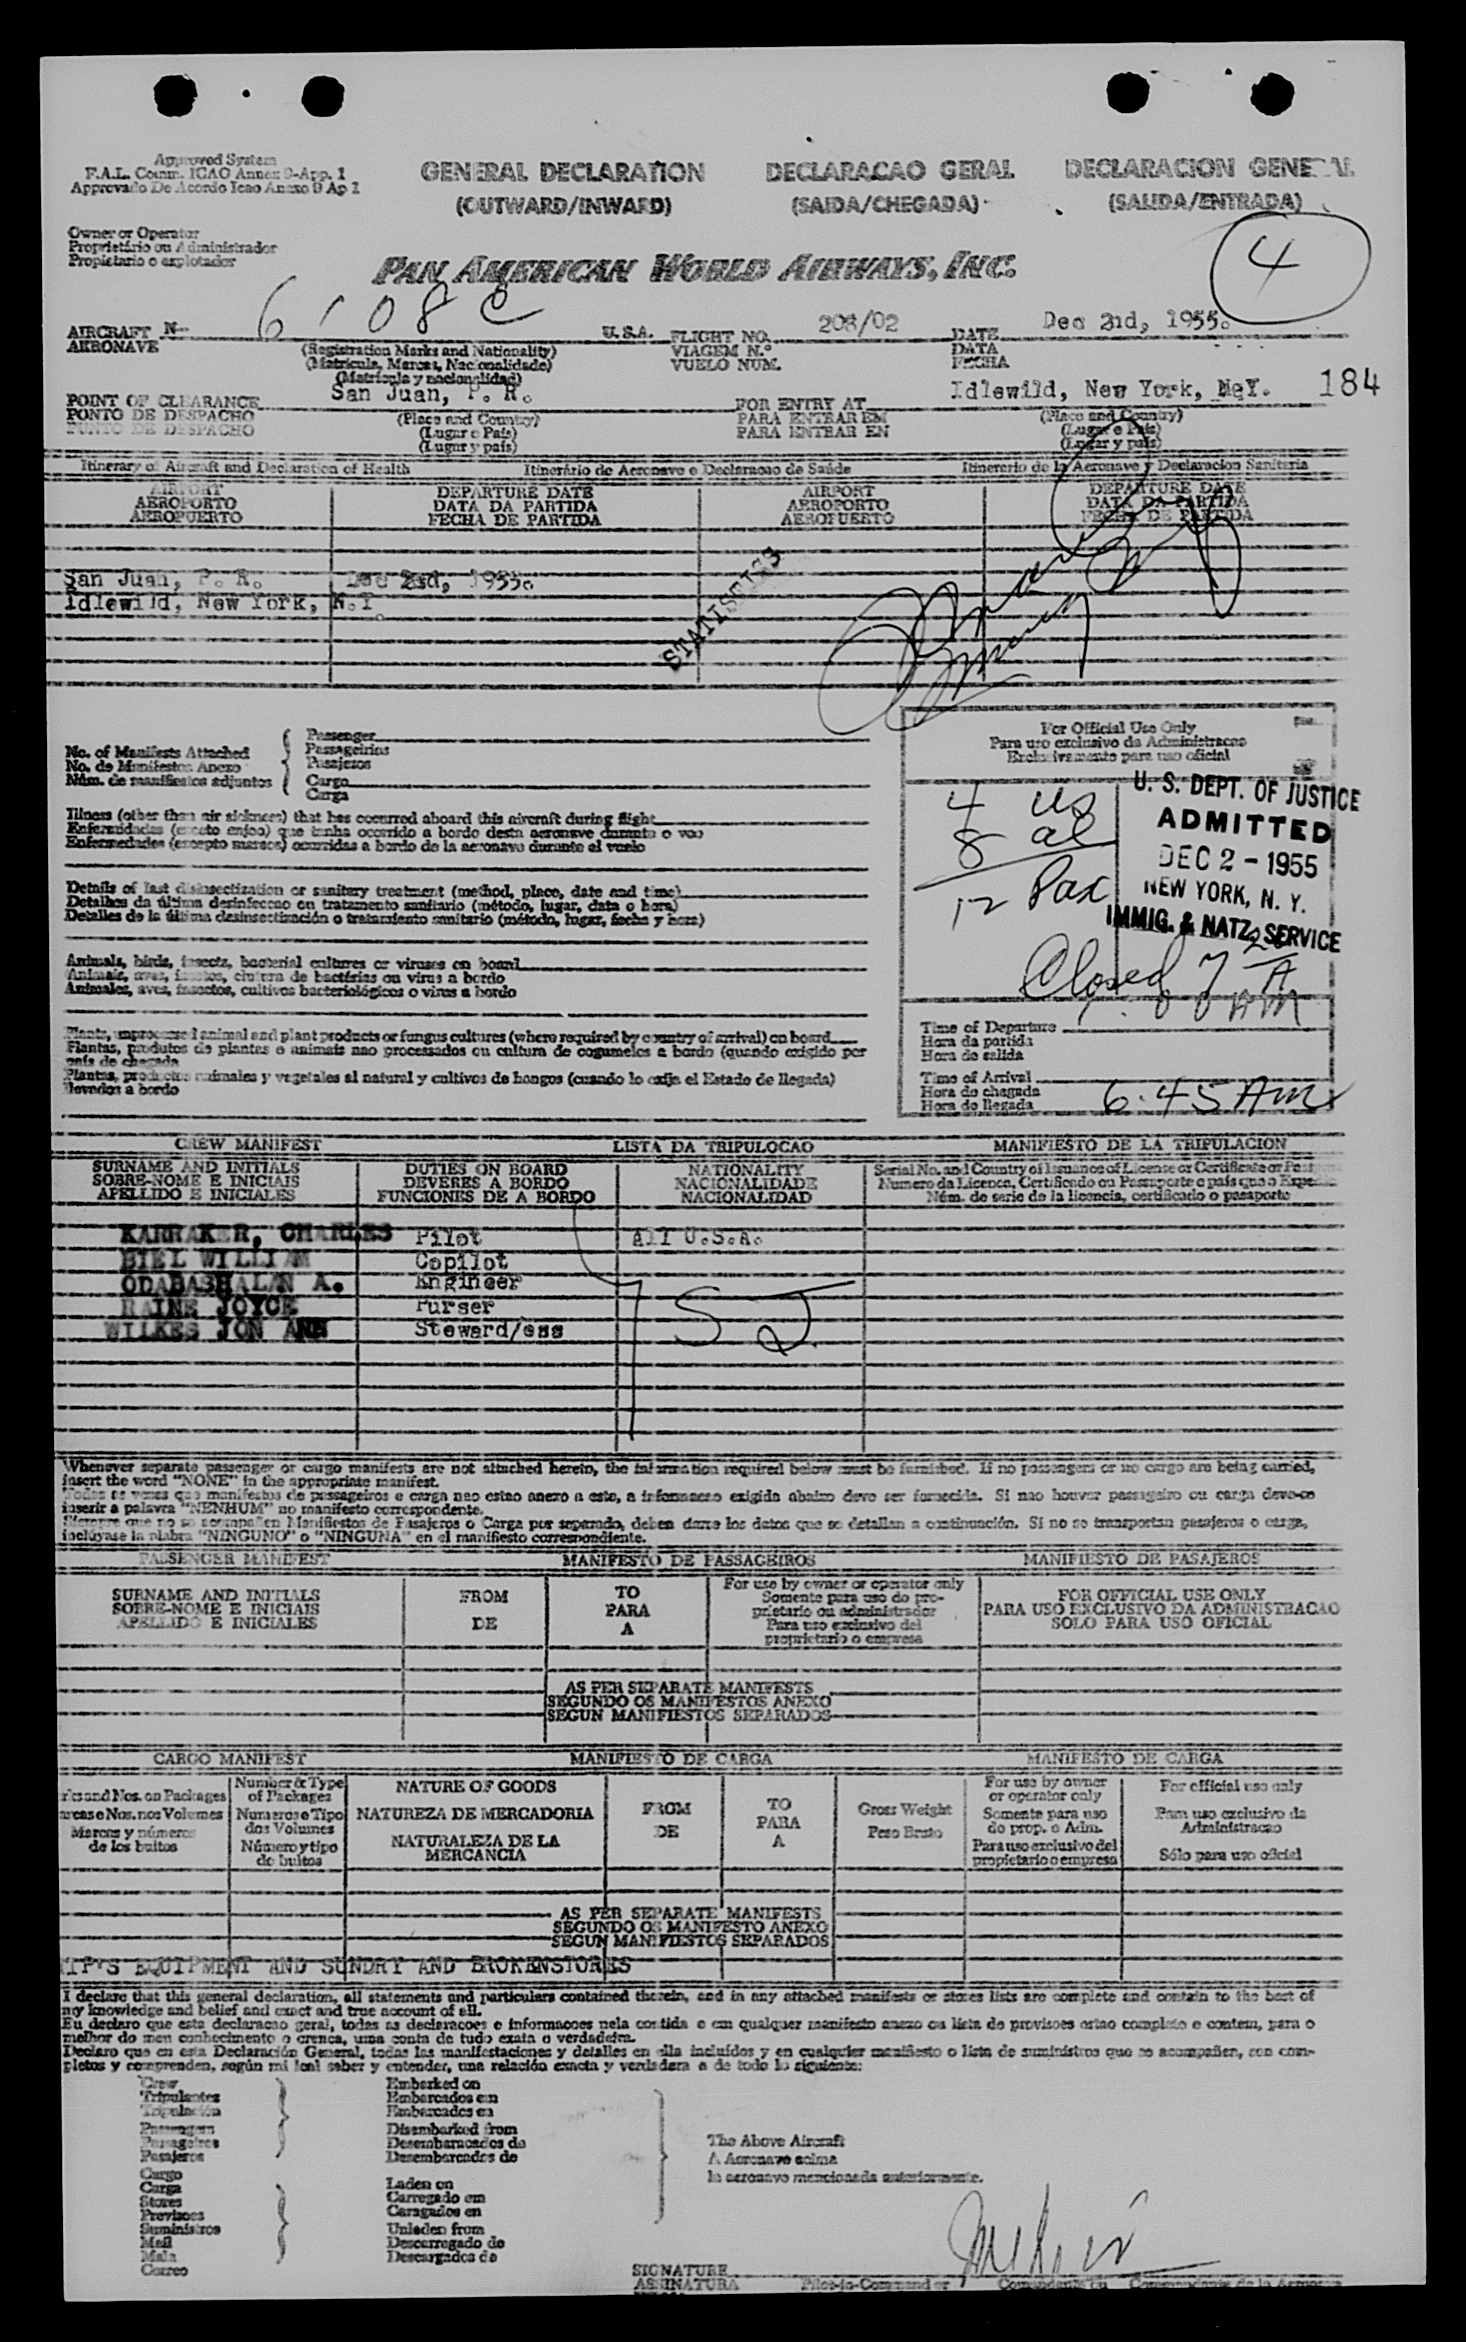 Approved System
F.A.L. Comm. ICAO Annex 9-App. 1
Approvado De Acordo Icao Anexo 9 Ap 1
GENERAL DECLARATION
(OUTWARD/INWARD)
DECLARACAO GERAL
(SAIDA/CHEGADA)
DECLARACION GENE AL
(SALIDA/ENTRADA)
4
Owner or Operator
Proprietário ou Administrador
Propietario o explotador
PAN AMERICAN WORLD AIRWAYS, INC.
AIRCRAFT N- 6108C U.S.A. FLIGHT NO. 208/02 DATE Dec 2nd, 1955.
AERONAVE (Registration Marks and Nationality) VIAGEM N.º DATA
(Matricula, Marcas, Nacionalidade) VUELO NUM. FECHA
(Matrícula y nacionalidad)
POINT OF CLEARANCE San Juan, P. R. FOR ENTRY AT Idlewild, New York, N.Y. 184
PONTO DE DESPACHO (Place and Country) PARA ENTRAR EM (Place and Country)
PUNTO DE DESPACHO (Lugar e País) PARA ENTRAR EN (Lugar e País)
(Lugar y país) (Lugar y país)
Itinerary of Aircraft and Declaration of Health Itinerário de Aeronave e Declaracao de Saúde Itinererio de la Aeronave y Declaracion Sanitaria
AIRPORT DEPARTURE DATE AIRPORT DEPARTURE DATE
AEROPORTO DATA DA PARTIDA AEROPORTO DATA DA PARTIDA
AEROPUERTO FECHA DE PARTIDA AEROPUERTO FECHA DE PARTIDA
San Juan, P. R. Dec 2nd, 1955.
Idlewild, New York, N.Y.
STATISTICS
No. of Manifests Attached
No. de Manifestos Anexo
Núm. de manifiestos adjuntos
Passenger
Passageirios
Pasajeros
Cargo
Carga
Illness (other than air sickness) that has occurred aboard this aircraft during flight
Enfermidades (exceto enjoo) que tenha ocorrido a bordo desta aeronave durante o voo
Enfermedades (excepto mareos) ocurridas a bordo de la aeronave durante el vuelo
Details of last disinsectization or sanitary treatment (method, place, date and time)
Detalhes da última desinfeccao ou tratamento sanitario (método, lugar, data o hora)
Detalles de la última desinsectización o tratamiento sanitario (método, lugar, fecha y hora)
Animals, birds, insects, bacterial cultures or viruses on board
Animais, aves, insetos, cultura de bactérias ou virus a bordo
Animales, aves, insectos, cultivos bacteriológicos o virus a bordo
Plants, unprocessed animal and plant products or fungus cultures (where required by country of arrival) on board
Plantas, produtos de plantas e animais nao processados ou cultura de cogumelos a bordo (quando exigido por
país de chegada
Plantas, productos animales y vegetales al natural y cultivos de hongos (cuando lo exija el Estado de llegada)
llevados a bordo
For Official Use Only
Para uso exclusivo da Administracao
Exclusivamente para uso oficial
4 US
8 al
12 Pax
U. S. DEPT. OF JUSTICE
ADMITTED
DEC 2 - 1955
NEW YORK, N. Y.
IMMIG. & NATZ. SERVICE
Closed 7 20 A
7:00 AM
Time of Departure
Hora da partida
Hora de salida
Time of Arrival
Hora de chegada
Hora de llegada
6:45 AM
CREW MANIFEST LISTA DA TRIPULOCAO MANIFIESTO DE LA TRIPULACION
SURNAME AND INITIALS DUTIES ON BOARD NATIONALITY Serial No. and Country of Issuance of License or Certificate or
SOBRE-NOME E INICIAIS DEVERES A BORDO NACIONALIDADE Numero da Licence, Certificado ou Passaporte e país que o
APELLIDO E INICIALES FUNCIONES DE A BORDO NACIONALIDAD Núm. de serie de la licencia, certificado o pasaporte
KARRAKER, CHARLES Pilot All U.S.A.
BIEL WILLIAM Copilot
ODABASHALAN A. Engineer
RAINE JOYCE Purser
WILKES JON ANN Steward/ess
5 SJ
Whenever separate passenger or cargo manifests are not attached herein, the information required below must be furnished. If no passengers or no cargo are being carried,
insert the word "NONE" in the appropriate manifest.
Todas as vezes que manifestos de passageiros e carga nao estao anexo a este, a informacao exigida abaixo deve ser fornecida. Si nao houver passageiro ou carga deve-se
inserir a palavra "NENHUM" no manifesto correspondente.
Siempre que no se acompañen Manifiestos de Pasajeros o Carga por separado, deben darse los datos que se detallan a continuación. Si no se transportan pasajeros o carga,
inclúyase la plabra "NINGUNO" o "NINGUNA" en el manifiesto correspondiente.
PASSENGER MANIFEST MANIFESTO DE PASSAGEIROS MANIFIESTO DE PASAJEROS
SURNAME AND INITIALS
SOBRE-NOME E INICIAIS
APELLIDO E INICIALES
FROM
DE
TO
PARA
A
For use by owner or operator only
Somente para uso do pro-
prietario ou administrador
Para uso exclusivo del
proprietario o empresa
FOR OFFICIAL USE ONLY
PARA USO EXCLUSIVO DA ADMINISTRACAO
SOLO PARA USO OFICIAL
AS PER SEPARATE MANIFESTS
SEGUNDO OS MANIFESTOS ANEXO
SEGUN MANIFIESTOS SEPARADOS
CARGO MANIFEST MANIFIESTO DE CARGA MANIFESTO DE CARGA
rks and Nos. on Packages
arcas e Nos. nos Volumes
Marcas y números
de los bultos
Number & Type
of Packages
Numeros e Tipo
dos Volumes
Número y tipo
de bultos
NATURE OF GOODS
NATUREZA DE MERCADORIA
NATURALEZA DE LA
MERCANCIA
FROM
DE
TO
PARA
A
Gross Weight
Peso Bruto
For use by owner
or operator only
Somente para uso
do prop. o Adm.
Para uso exclusivo del
propietario o empresa
For official use only
Para uso exclusivo da
Administracao
Sólo para uso oficial
AS PER SEPARATE MANIFESTS
SEGUNDO OS MANIFESTO ANEXO
SEGUN MANIFIESTOS SEPARADOS
EQUIPMENT AND SUNDRY AND BROKENSTORES
I declare that this general declaration, all statements and particulars contained therein, and in any attached manifests or stores lists are complete and contain to the best of
my knowledge and belief and exact and true account of all.
Eu declaro que esta declaracao geral, todas as declaracoes e informacoes nela contida e em qualquer manifesto anexo ou lista de provisoes estao completo e contem, para o
melhor do meu conhecimento o crenca, uma conta de tudo exata o verdadeira.
Declaro que en esta Declaración General, todas las manifestaciones y detalles en ella incluídos y en cualquier manifiesto o lista de suministros que se acompañen, son com-
pletos y comprenden, según mi leal saber y entender, una relación exacta y verdadera a de todo lo siguiente:
Crew
Tripulantes
Tripulación
Passengers
Passageiros
Pasajeros
Cargo
Carga
Stores
Provisoes
Suministros
Mail
Mala
Correo
Embarked on
Embarcados em
Embarcados en
Disembarked from
Desembarcados de
Desembarcados de
Laden on
Carregado em
Caragados en
Unladen from
Descarregado de
Descargados de
The Above Aircraft
A Aeronave acima
la aeronave mencionada anteriormente.
SIGNATURE
ASSINATURA Pilot-in-Command or